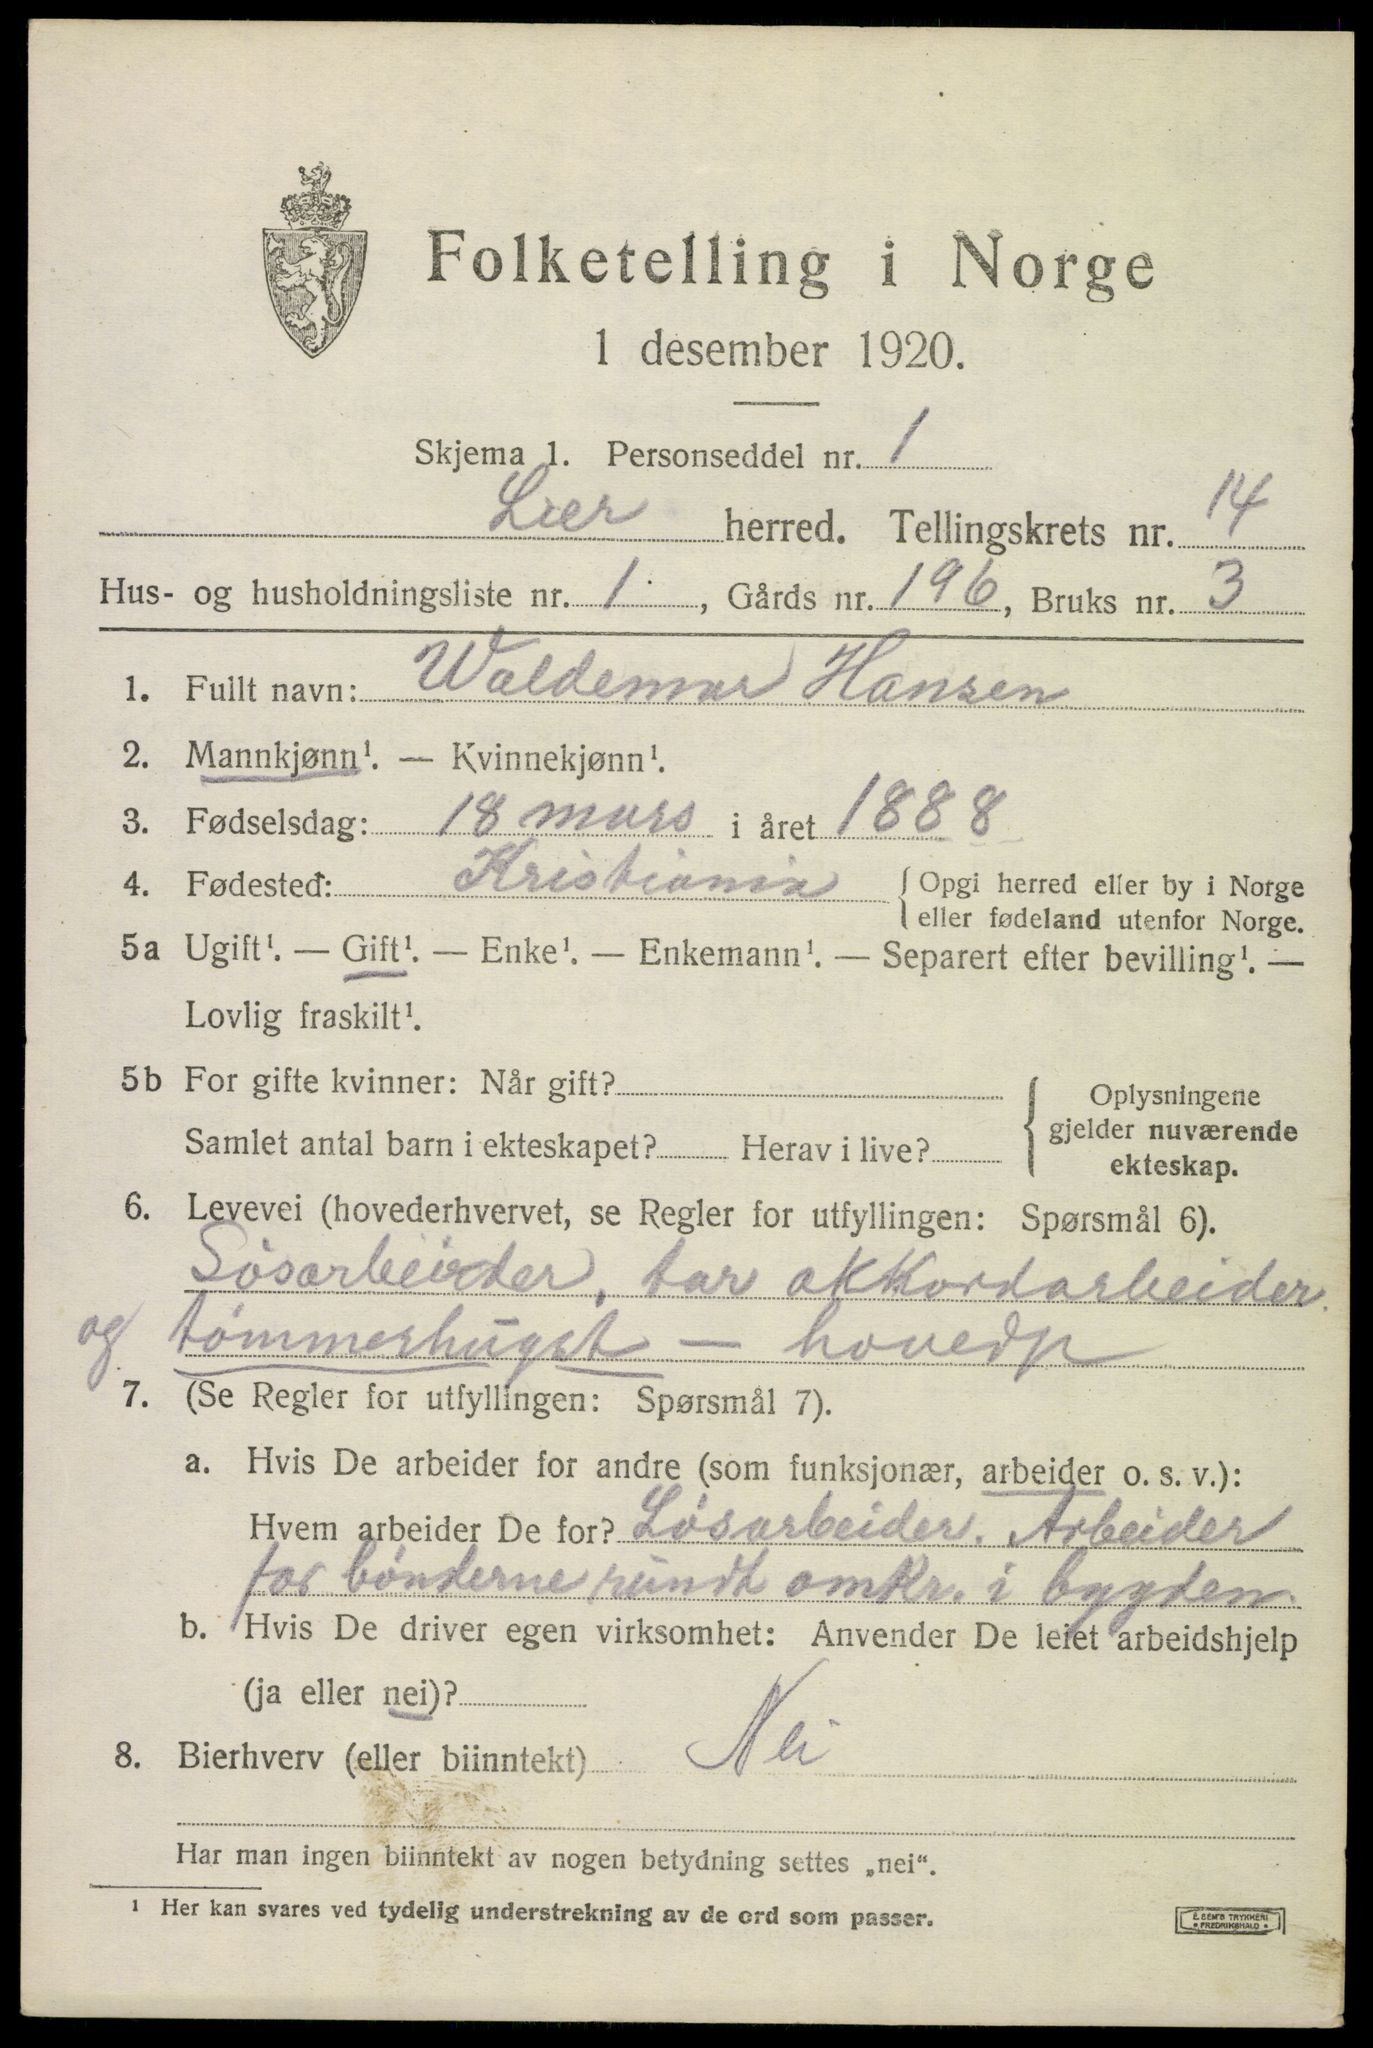 Folketelling i Norge
1 desember 1920.
Skjema 1. Personseddel nr. 1
Lier herred. Tellingskrets nr. 14
Hus- og husholdningsliste nr. 1, Gårds nr. 196, Bruks nr. 3
1. Fullt navn: Waldemar Hansen
2. Mannkjønn¹. — Kvinnekjønn¹.
3. Fødselsdag: 18 mars i året 1888
4. Fødested: Kristiania { Opgi herred eller by i Norge
eller fødeland utenfor Norge.
5a Ugift¹. — Gift¹. — Enke¹. — Enkemann¹. — Separert efter bevilling¹. —
Lovlig fraskilt¹.
5b For gifte kvinner: Når gift?
Samlet antal barn i ekteskapet? Herav i live?
Oplysningene
gjelder nuværende
ekteskap.
6. Levevei (hovederhvervet, se Regler for utfyllingen: Spørsmål 6).
Løsarbeider, tar akkordarbeider
og tömmerhugst — hovedp
7. (Se Regler for utfyllingen: Spørsmål 7).
a. Hvis De arbeider for andre (som funksjonær, arbeider o. s. v.):
Hvem arbeider De for? Løsarbeider. Arbeider
for bönderne rundt omkr. i bygden.
b. Hvis De driver egen virksomhet: Anvender De leiet arbeidshjelp
(ja eller nei)?
8. Bierhverv (eller biinntekt) Nei
Har man ingen biinntekt av nogen betydning settes „nei“.
¹ Her kan svares ved tydelig understrekning av de ord som passer.
E. SEM'S TRYKKERI
• FREDRIKSHALD •